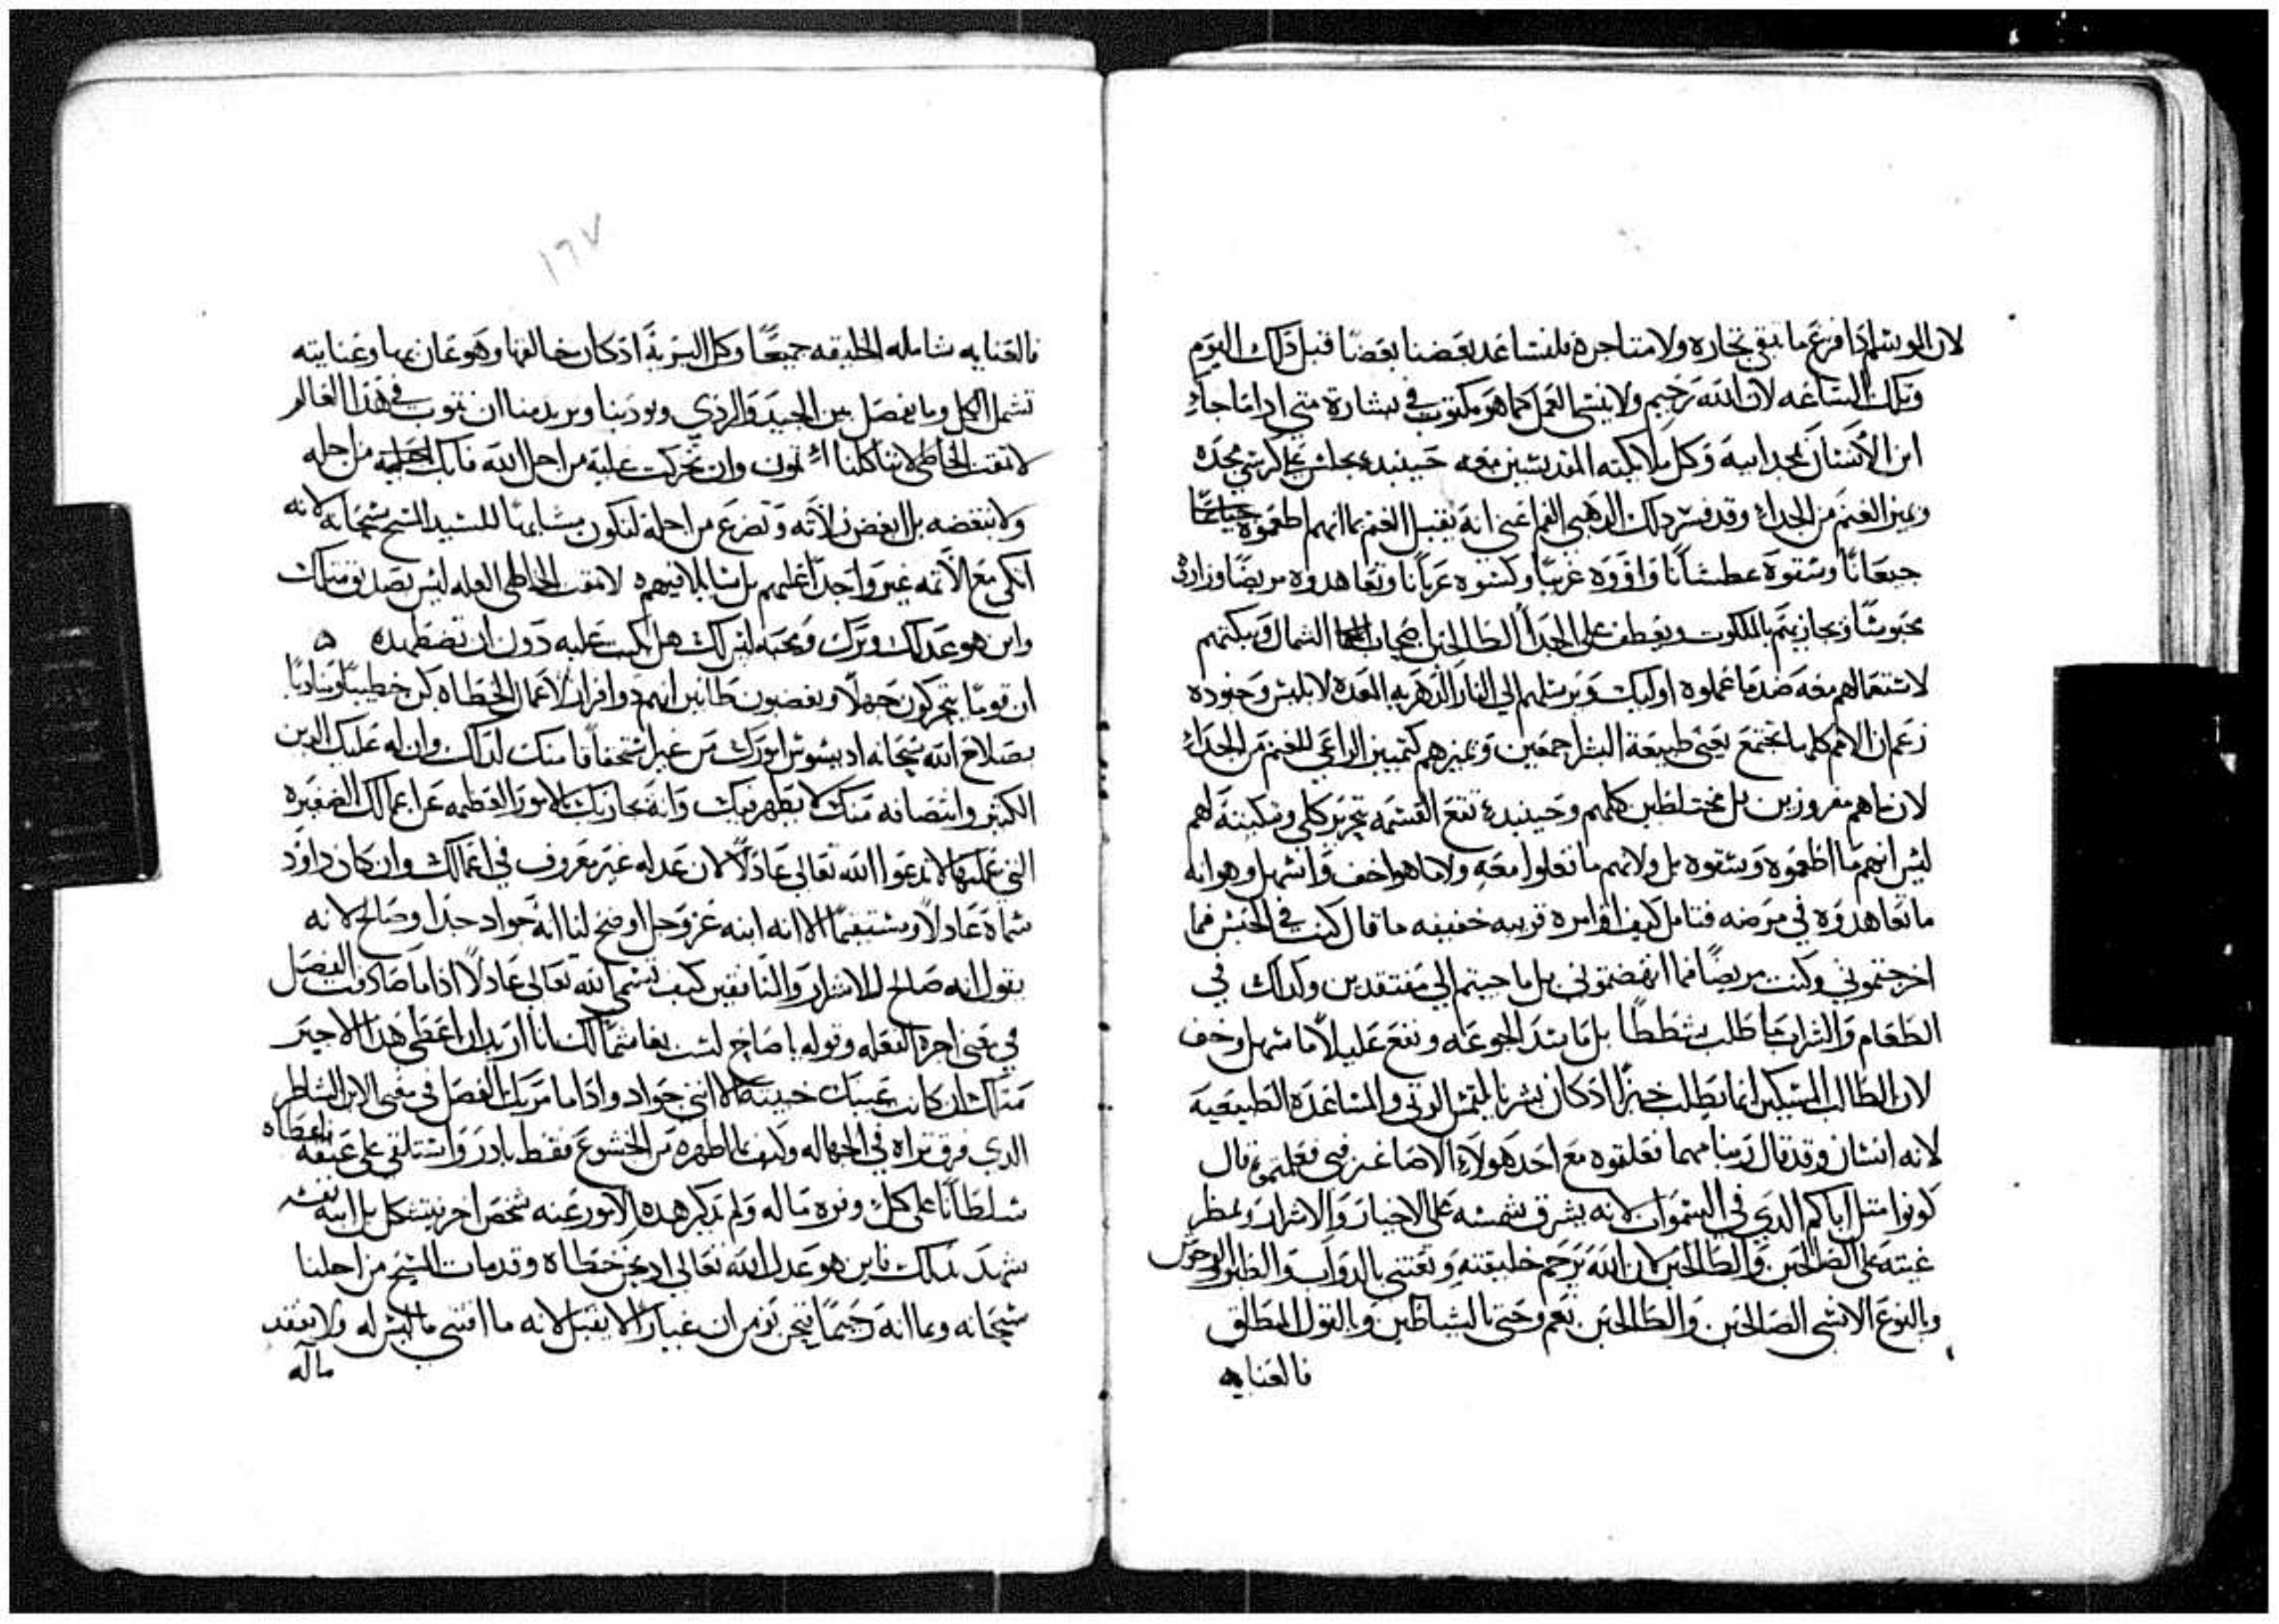 لان الموسم اذا فرغ ما تبقى تجاره ولا متاجره فلنساعد بعضنا بعضًا قبل ذلك اليوم
وتلك الساعه لان الله رحيم ولا ينسى العمل كما هو مكتوب في بشارة متى اذا ما جاء
ابن الانسان بمجد ابيه وكل ملايكته القديسين معه حينيدٍ يجلس على كرسي مجده
ويميز الغنم من الجداء وقد فسر ذلك الدهبي الفم اعني انه يقبل الغنم بما انهم اطعموه
جيعانًا وسقوه عطشانًا واووه غريبًا وكسوه عريانًا وتعاهدوه مريضًا وزاروه
محبوسًا ويجازيهم بالملكوت ويعطف على الجداء الطالحين اصحاب الشمال ويبكتهم
لاستعمالهم معه ضد ما عملوه اوليك ويرسلهم الى النار الدهريه المعده لابليس وجنوده
زعم ان الامم كلها تجتمع يعني طبيعة البشر اجمعين ويميزهم كتمييز الراعي للغنم من الجداء
لان ما هم مفروزين بل مختلطين كلهم وحينيدٍ تقع القسمه بتحرير كلي وتبكيته لهم
ليس انهم ما اطعموه وسقوه بل ولانهم ما فعلوا معه ولا ما هو اخف واسهل وهو انه
ما تعاهدوه في مرضه فتامل كيف اوامره قريبه خفيفه ما قال كنت في الحبس فما
اخرجتموني وكنت مريضًا فما انهضتموني بل ما جيتم الي مفتقدين وكدلك في
الطعام والشراب ما طلب شططًا بل ما يسد الجوعه وينقع غليلًا ما سهل وخف
لان الطالب المسكين انما يطلب خبزًا ادكان بشريا يلتمس القوت والمساعده الطبيعيه
لانه انسان وقد قال ربنا مهما فعلتوه مع احد هولاء الاصاغر فبي فعلتموه قال
كونوا مثل اباكم الدي في السموات لانه يشرق شمسه على الاخيار والاشرار ويمطر
غيثه على الصالحين والطالحين لان الله يرحم خليقته ويعتني بالدواب والطيور والوحوش
وبالنوع الانسي الصالحين والطالحين نعم وحتى بالشياطين وبالقول المطلق
فالعنايه
١٦٧
فالعنايه شامله الخليقه جميعًا وكل البريه ادكان خالقها وهو عان بها وعنايته
تشمل الكل وما يفصل بين الجيد والردي ويودبنا ويريد منا ان نتوب في هدا العالم
لا تمقت الخاطي لاننا كلنا اثمون وان تحركت عليه من اجل الله فابك من اجله
ولا تبغضه بل ابغض زلاته وتضرع من اجله لتكون مشابهًا للسيد المسيح سبحانه لانه
اتكى مع الاثمه غير واجدًا عليهم بل سايلًا فيهم لا تمقت الخاطي العله ليس بصديق مثلك
واين هو عدلك وبرك ومحبه ليس لك هل بكيت عليه دون ان تضطهده
ان قومًا يتحركون جهلًا ويغضبون ظانين انهم دو افراز لاعمال الخطاه كن خطيبًا ومناديًا
بصلاح الله سبحانه اد يسوس امورك من غير استحقاقا منك لدلك وان له عليك الدين
الكثير وانتصافه منك لا يظهر فيك وانه يجازيك بالامور العظيمه عن اعمالك الصغيره
التي عملتها لا تدعوا الله تعالى عادلًا لان عدله غير معروف في اعمالك وان كان داوود
سماه عادلًا ومستقيمًا الا انه ابنه عز وجل اوضح لنا انه جواد جدا وصالح لانه
يقول انه صالح للاشرار والمنافقين كيف تسمي الله تعالى عادلًا اذا ما صادفت الفصل
في معنى اجرة الفعله وقوله يا صاح لست بغاشمًا لك انا اريد ان اعطي هدا الاخير
مثلك ان كانت عينك خبيثه لانني جواد واذا ما مر بك الفصل في معنى الابن الشاطر
الدي فرق ثراه في الجهاله وكيف بما اظهره من الخشوع فقط بادر واستلقى على عنقه واعطاه
سلطانًا على كل وفرة ماله ولم يدكر هده الامور عنه شخص اخر بتشكل بل ابنه نفسه
شهد بدلك فاين هو عدل الله تعالى اد نحن خطاه وقد مات المسيح من اجلنا
سبحانه وبما انه رحيمًا فنحن نومن ان غيارًا لا يقبل لانه ما اقتنى ما ليس له ولا يفقد
ماله